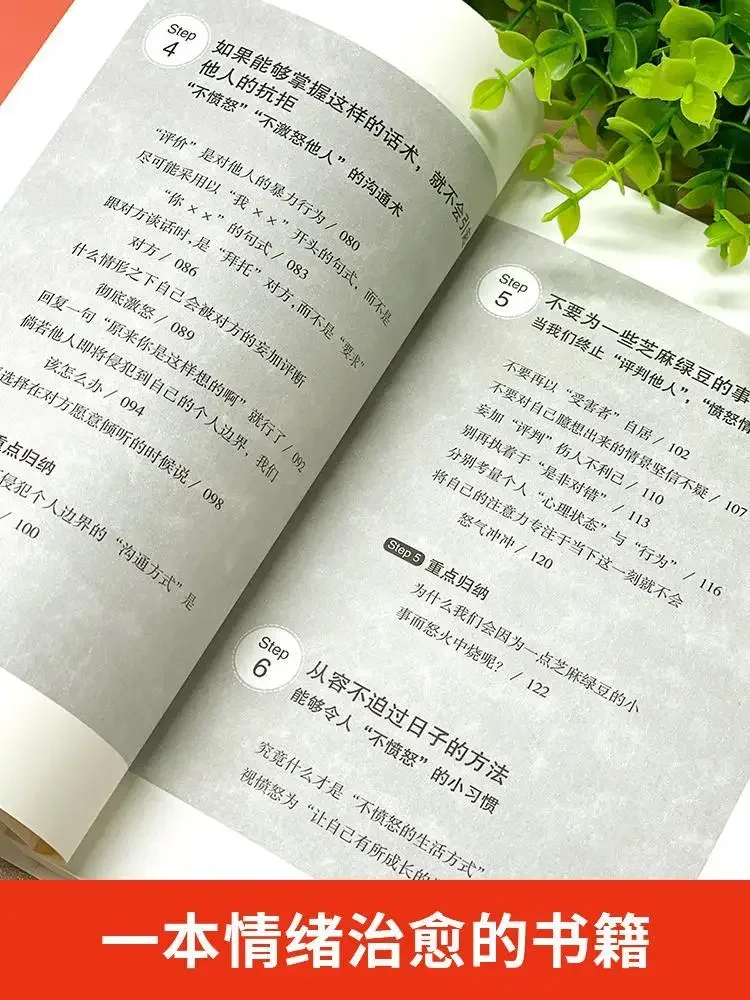 Step
4
如果能够掌握这样的话术，就不会引
他人的抗拒
“不愤怒”“不激怒他人”的沟通术
“评价”是对他人的暴力行为 / 080
尽可能采用以“我××”开头的句式，而不是
“你××”的句式 / 083
跟对方谈话时，是“拜托”对方，而不是“要求”
对方 / 086
什么情形之下自己会被对方的妄加评断
彻底激怒 / 089
回复一句“原来你是这样想的啊”就行了 / 092
倘若他人即将侵犯到自己的个人边界，我们
该怎么办 / 094
选择在对方愿意倾听的时候说 / 098
重点归纳
侵犯个人边界的“沟通方式”是
/ 100
Step
5
不要为一些芝麻绿豆的事
当我们终止“评判他人”，“愤怒情
不要再以“受害者”自居 / 102
不要对自己臆想出来的情景坚信不疑 / 107
妄加“评判”伤人不利己 / 110
别再执着于“是非对错” / 113
分别考量个人“心理状态”与“行为” / 116
将自己的注意力专注于当下这一刻就不会
怒气冲冲 / 120
Step 5 重点归纳
为什么我们会因为一点芝麻绿豆的小
事而怒火中烧呢？ / 122
Step
6
从容不迫过日子的方法
能够令人“不愤怒”的小习惯
究竟什么才是“不愤怒的生活方式”
视愤怒为“让自己有所成长的
一本情绪治愈的书籍